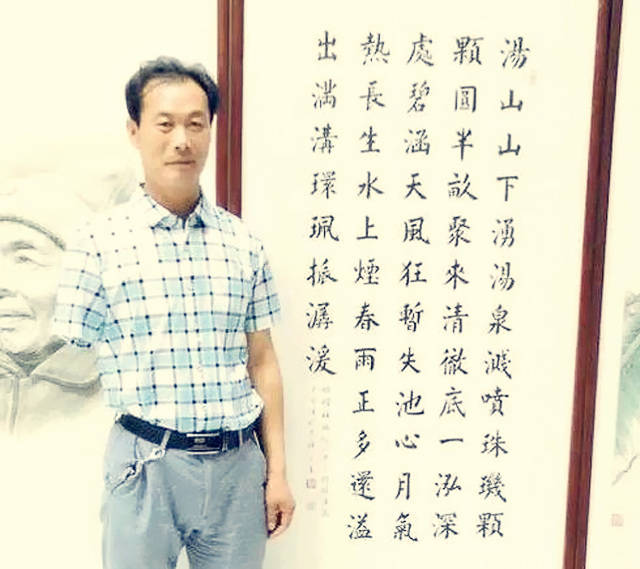 湯山山下湧湯泉濺噴珠璣顆
顆圓半畝聚來清徹底一泓深
處碧涵天風狂暫失池心月氣
熱長生水上煙春雨正多還溢
出滿溝環珮振潺湲